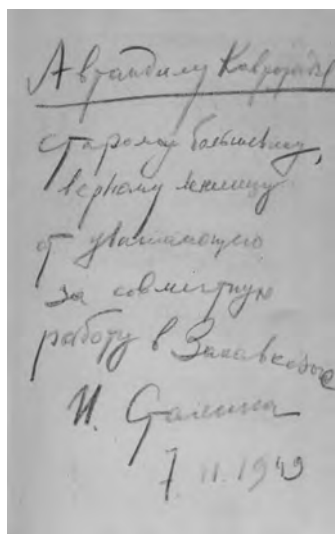 Автандилу
старому большевику,
верному ленинцу
от уважающего
за совместную
работу в Закавказье
И. Сталина
7. 11. 1949